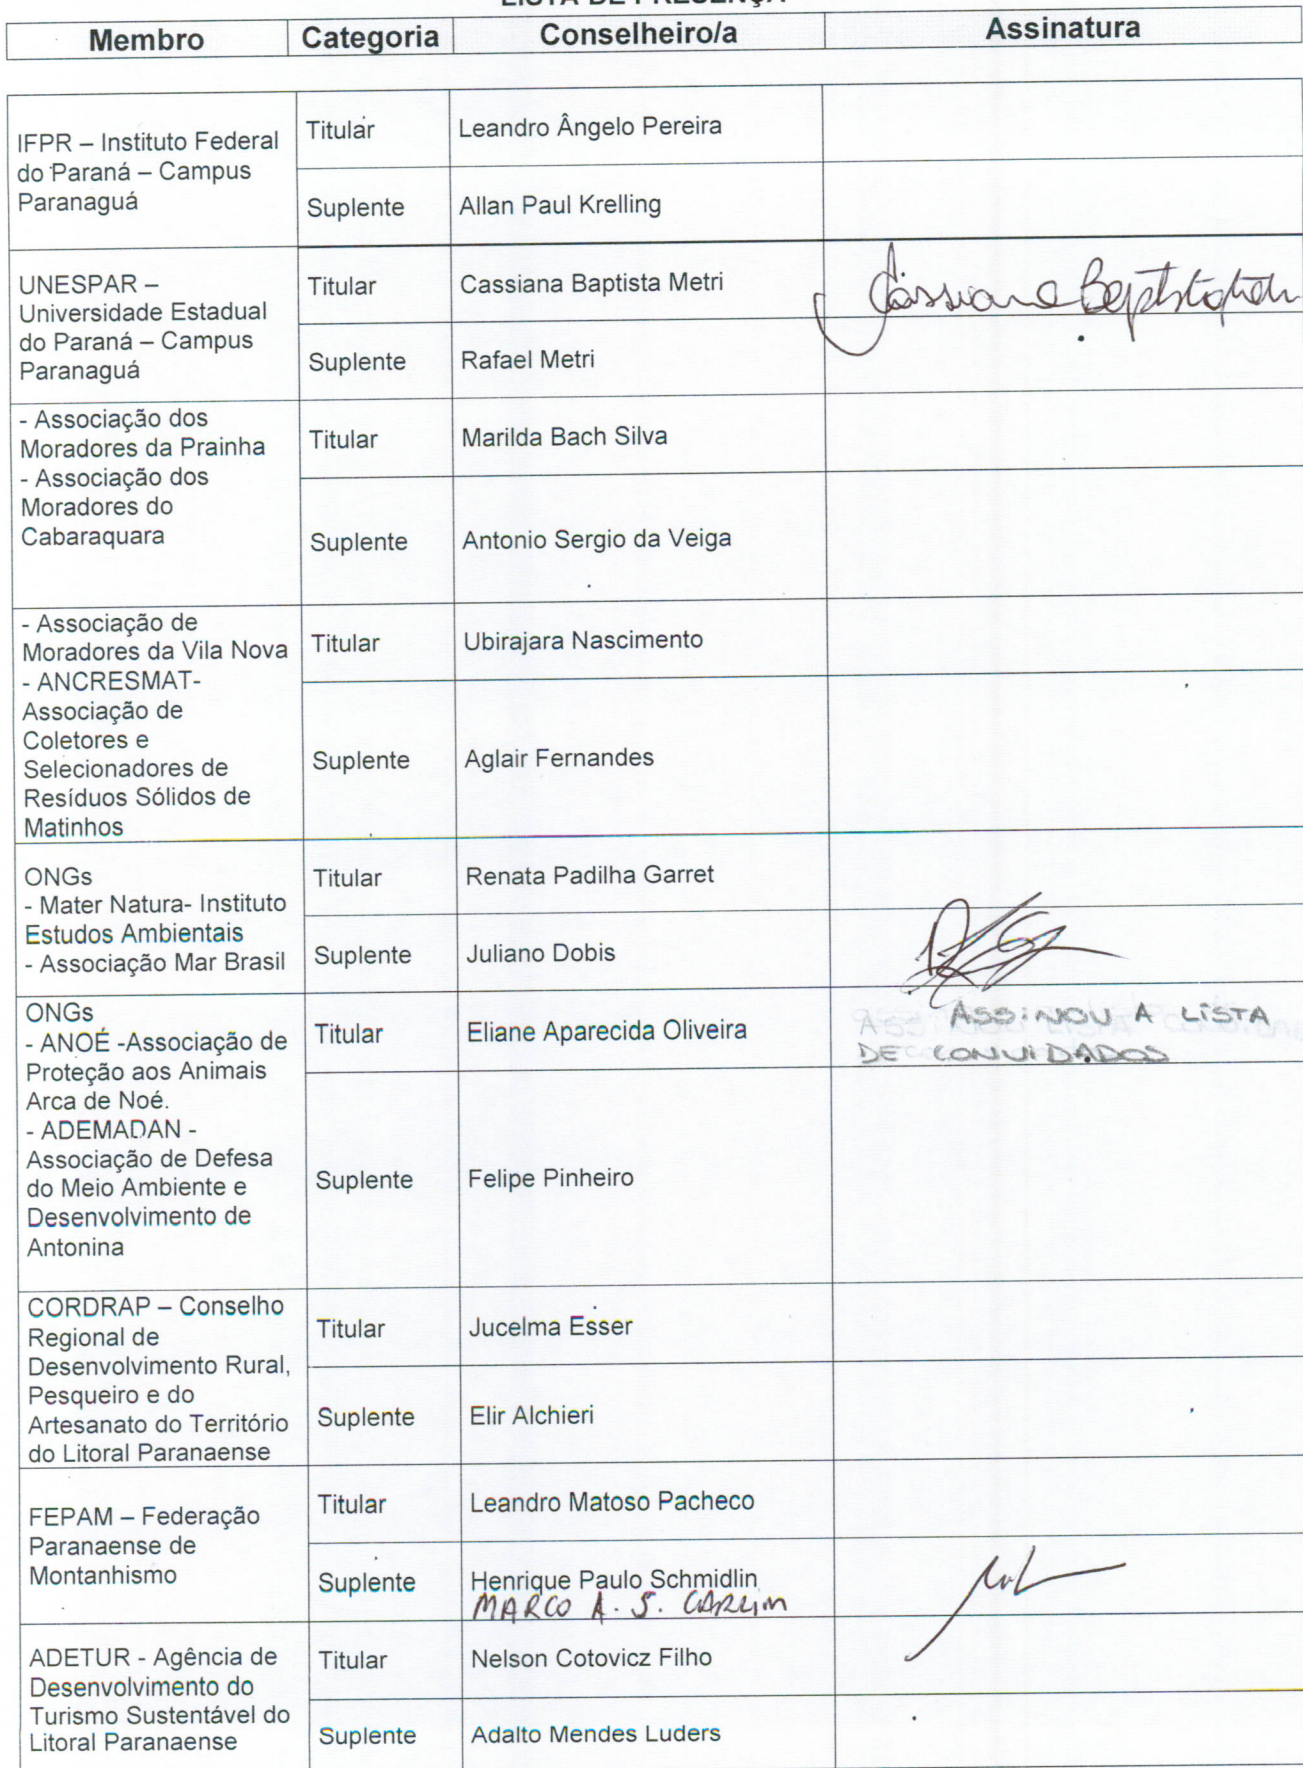 LISTA DE PRESENÇA
Membro Categoria Conselheiro/a Assinatura
IFPR – Instituto Federal
do Paraná – Campus
Paranaguá
Titular Leandro Ângelo Pereira
Suplente Allan Paul Krelling
UNESPAR –
Universidade Estadual
do Paraná – Campus
Paranaguá
Titular Cassiana Baptista Metri
Cassiana Baptista Metri
Suplente Rafael Metri
- Associação dos
Moradores da Prainha
- Associação dos
Moradores do
Cabaraquara
Titular Marilda Bach Silva
Suplente Antonio Sergio da Veiga
- Associação de
Moradores da Vila Nova
- ANCRESMAT-
Associação de
Coletores e
Selecionadores de
Resíduos Sólidos de
Matinhos
Titular Ubirajara Nascimento
Suplente Aglair Fernandes
ONGs
- Mater Natura- Instituto
Estudos Ambientais
- Associação Mar Brasil
Titular Renata Padilha Garret
Suplente Juliano Dobis
ONGs
- ANOÉ -Associação de
Proteção aos Animais
Arca de Noé.
- ADEMADAN -
Associação de Defesa
do Meio Ambiente e
Desenvolvimento de
Antonina
Titular Eliane Aparecida Oliveira
ASSINOU A LISTA
DE CONVIDADOS
Suplente Felipe Pinheiro
CORDRAP – Conselho
Regional de
Desenvolvimento Rural,
Pesqueiro e do
Artesanato do Território
do Litoral Paranaense
Titular Jucelma Esser
Suplente Elir Alchieri
FEPAM – Federação
Paranaense de
Montanhismo
Titular Leandro Matoso Pacheco
Suplente Henrique Paulo Schmidlin
MARCO A. S.
ADETUR - Agência de
Desenvolvimento do
Turismo Sustentável do
Litoral Paranaense
Titular Nelson Cotovicz Filho
Suplente Adalto Mendes Luders